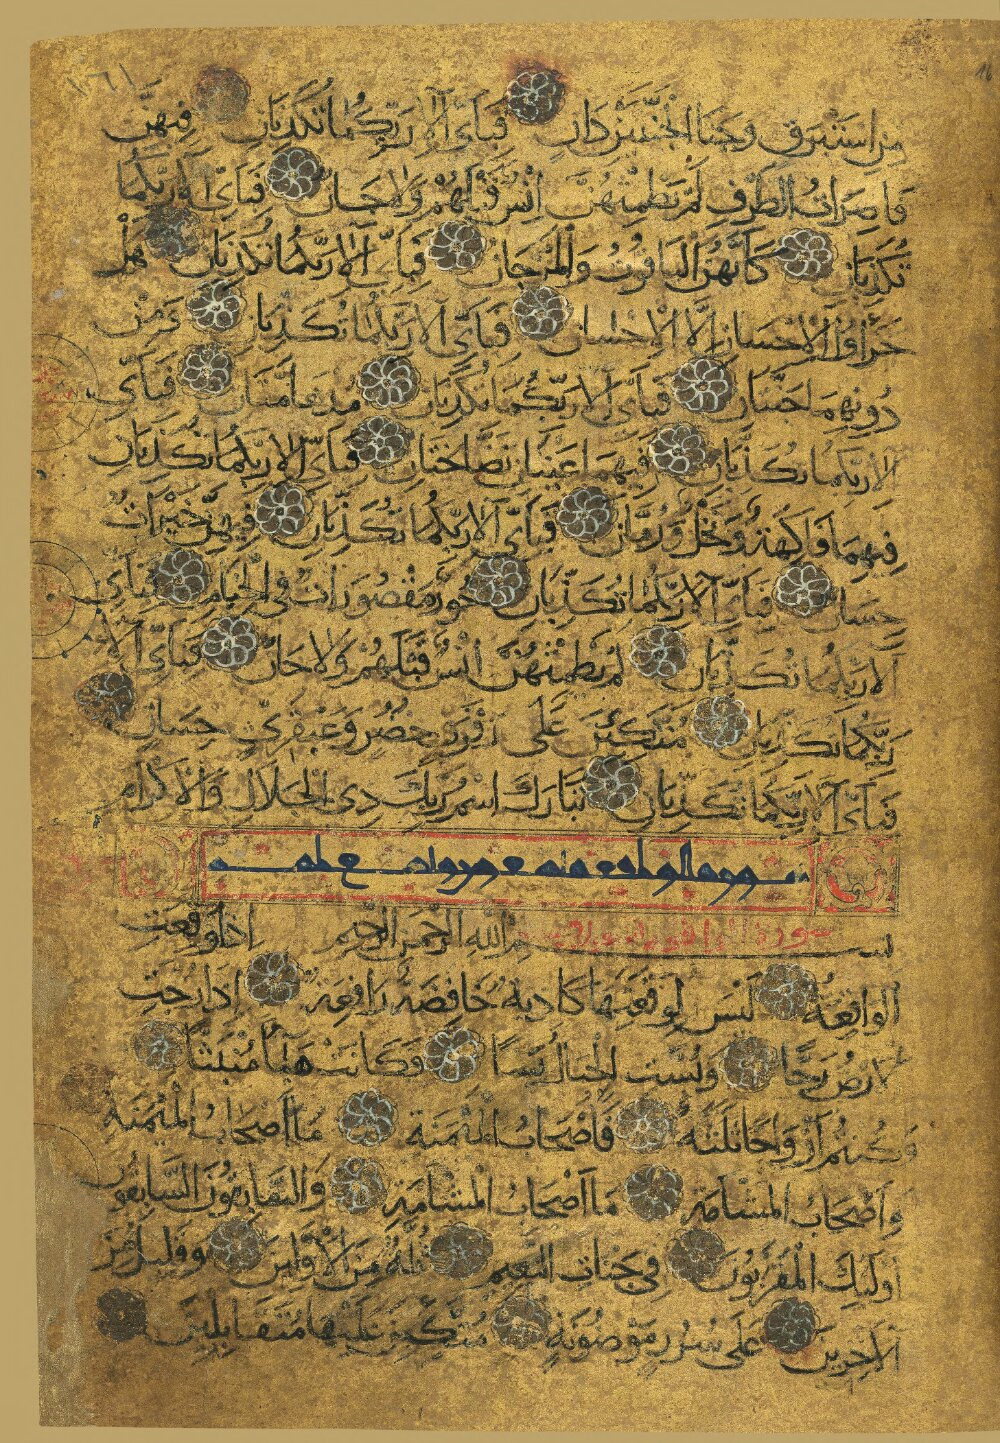 ١٦١
من استبرق وجنا الجنتين دان فبأي آلاء ربكما تكذبان فيهن
قاصرات الطرف لم يطمثهن انس قبلهم ولا جان فبأي آلاء ربكما
تكذبان كأنهن الياقوت والمرجان فبأي آلاء ربكما تكذبان هل
جزاؤ الاحسان إلا الاحسان فبأي آلاء ربكما تكذبان ومن
دونهما جنتان فبأي آلاء ربكما تكذبان مدهامتان فبأي
آلاء ربكما تكذبان فيهما عينان نضاختان فبأي آلاء ربكما تكذبان
فيهما فاكهة ونخل ورمان فبأي آلاء ربكما تكذبان فيهن خيرات
حسان فبأي آلاء ربكما تكذبان حور مقصورات في الخيام فبأي
آلاء ربكما تكذبان لم يطمثهن انس قبلهم ولا جان فبأي آلاء
ربكما تكذبان متكئين على رفرف خضر وعبقري حسان
فبأي آلاء ربكما تكذبان تبارك اسم ربك ذي الجلال والاكرام
سورة
بسم الله الرحمن الرحيم اذا وقعت
الواقعة ليس لوقعتها كاذبة خافضة رافعة اذا رجت
الارض رجا وبست الجبال بسا وكانت هباء منبثا
وكنتم ازواجا ثلثة فأصحاب الميمنة ما أصحاب الميمنة
وأصحاب المشأمة ما أصحاب المشأمة والسابقون السابقون
اوليك المقربون في جنات النعيم ثلة من الاولين وقليل من
الآخرين على سرر موضونة متكئين عليها متقابلين